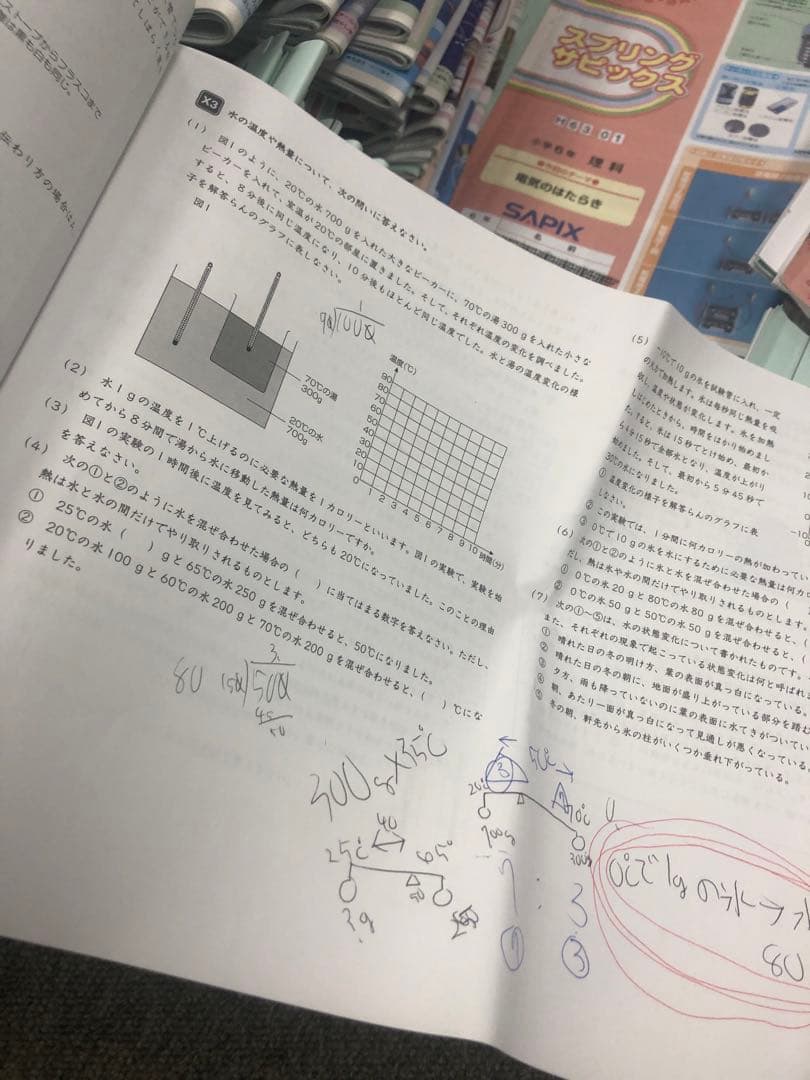 ストーブからフラスコまで
X3 水の温度や熱量について、次の問いに答えなさい。
(1) 図1のように、20℃の水700gを入れた大きなビーカーに、70℃の湯300gを入れた小さな
ビーカーを入れて、室温が20℃の部屋に置きました。そして、それぞれ温度の変化を調べました。
すると、8分後に同じ温度になり、10分後もほとんど同じ温度でした。水と湯の温度変化の様
子を解答らんのグラフに表しなさい。
図1
70℃の湯
300g
20℃の水
700g
温度(℃)
90
80
70
60
50
40
30
20
10
0
1 2 3 4 5 6 7 8 9 10 時間(分)
(2) 水1gの温度を1℃上げるのに必要な熱量を1カロリーといいます。図1の実験で、実験を始
めてから8分間で湯から水に移動した熱量は何カロリーですか。
(3) 図1の実験の1時間後に温度を見てみると、どちらも20℃になっていました。このことの理由
を答えなさい。
(4) 次の①と②のように水を混ぜ合わせた場合の( )に当てはまる数字を答えなさい。ただし、
熱は水と水の間だけでやり取りされるものとします。
① 25℃の水( )gと65℃の水250gを混ぜ合わせると、50℃になりました。
② 20℃の水100gと60℃の水200gと70℃の水200gを混ぜ合わせると、( )℃にな
りました。
80
300g×35℃
25℃
40
65°
50
3g
20℃
50℃
70℃
700g
300g
7:3
⑦ ③
0℃で1gの氷→水
80
(5) -10℃で10gの氷を試験管に入れ、一定
の火力で加熱します。氷は毎秒同じ熱量を吸
収し、温度や状態が変化します。氷を加熱
しはじめたときから、時間をはかり始めまし
た。すると、氷は15秒でとけ始め、最初か
ら4分15秒で全部水となり、温度が上がり
始めました。そして、最初から5分45秒で
30℃の水になりました。
① 温度変化の様子を解答らんのグラフに表
しなさい。
② この実験では、1分間に何カロリーの熱が加わってい
③ 0℃で10gの氷を水にするために必要な熱量は何カロ
(6) 次の①と②のように氷と水を混ぜ合わせた場合の(
だし、熱は氷や水の間だけでやり取りされるものとします。
① 0℃の氷20gと80℃の水80gを混ぜ合わせると、(
② 0℃の氷50gと50℃の水50gを混ぜ合わせると、(
(7) 次の①~⑤は、水の状態変化について書かれたものです。
また、それぞれの現象で起こっている状態変化は何と呼ばれ
① 晴れた日の冬の明け方、葉の表面が真っ白になっている。
② 晴れた日の冬の朝に、地面が盛り上がっている部分を踏む
③ 夕方、雨も降っていないのに葉の表面に水てきがついてい
④ 朝、あたり一面が真っ白になって見通しが悪くなっている。
⑤ 冬の朝、軒先から氷の柱がいくつか垂れ下がっている。
スプリング
サピックス
H63 01
小学6年 理科
電気のはたらき
SAPIX
氏名